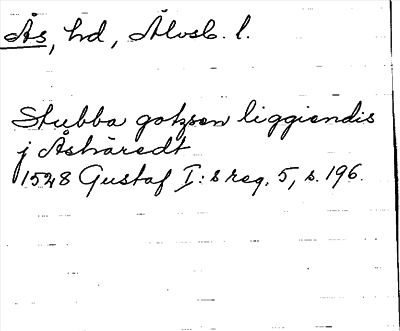 Ås, hd, Älvsb. l.
Stubba gotzsen liggiendis
j Åshäredt
1528 Gustaf I:s reg. 5, s. 196.